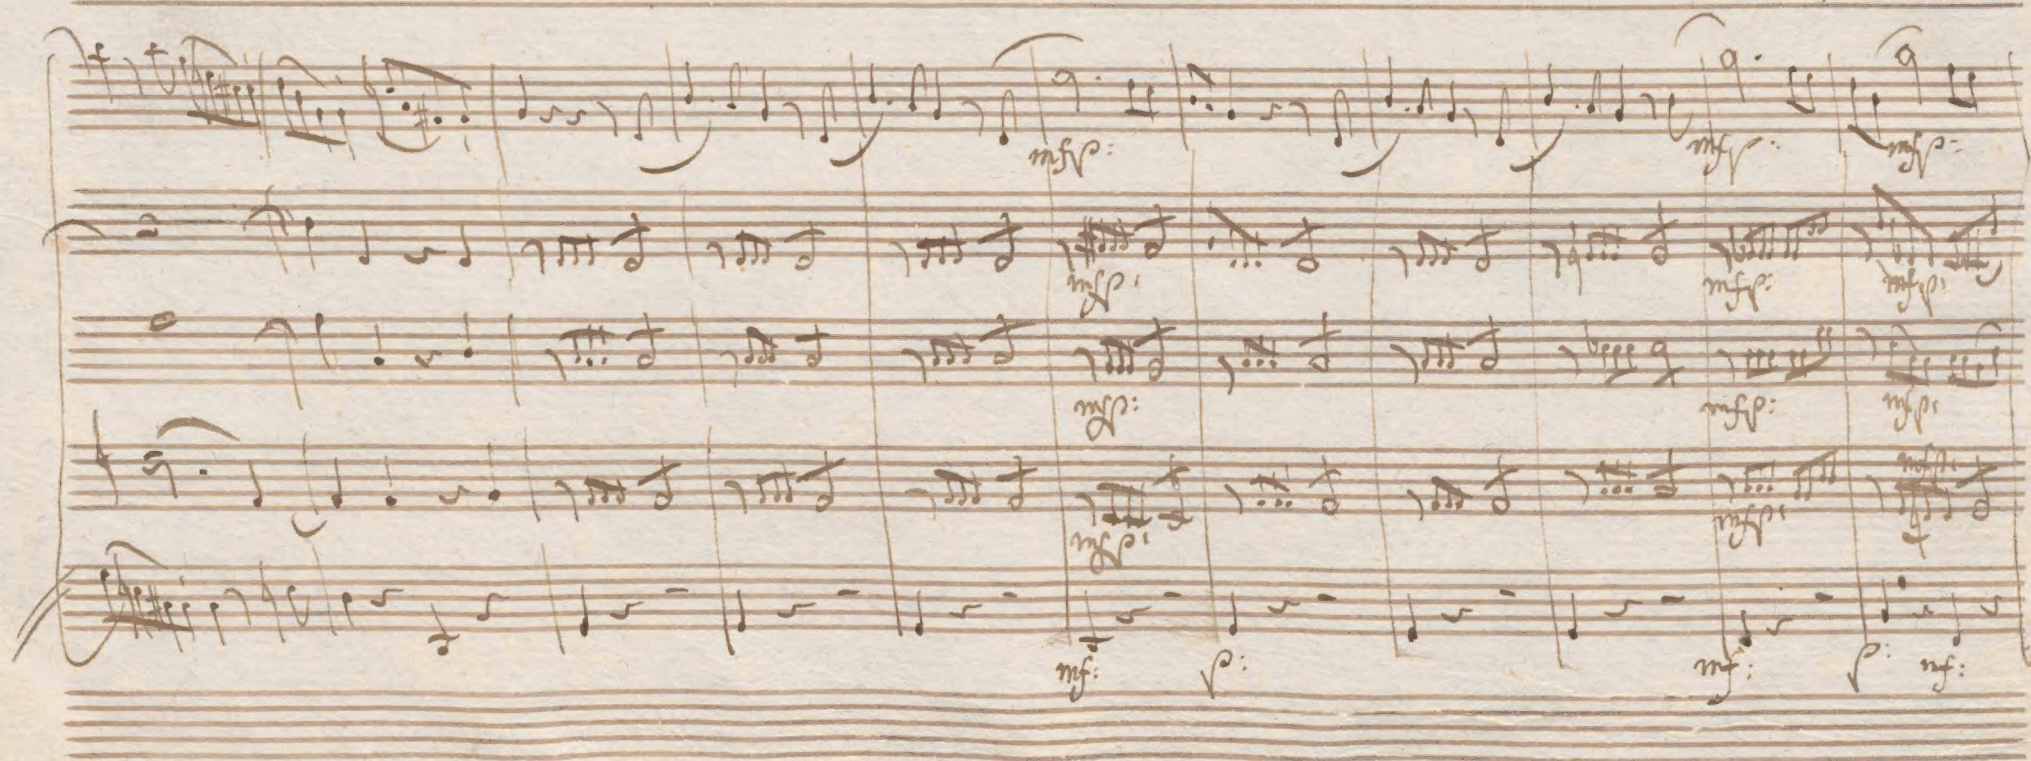 mfp:
mfp:
mfp:
mfp:
mfp:
mfp:
mfp:
mfp:
mfp:
mfp:
mfp:
mfp:
mf:
p:
mf:
p:
mf: